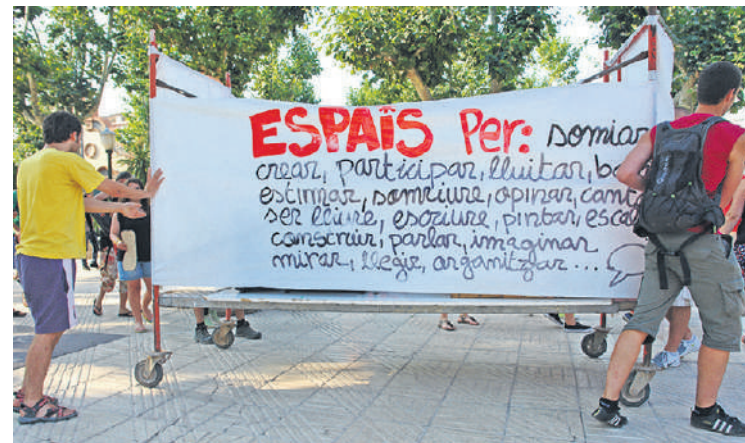 ESPAIS Per: somiar
crear, participar, lluitar,
estimar, somriure, opinar,
ser lliure, escriure, pintar,
construir, parlar, imaginar
mirar, llegir, organitzar...